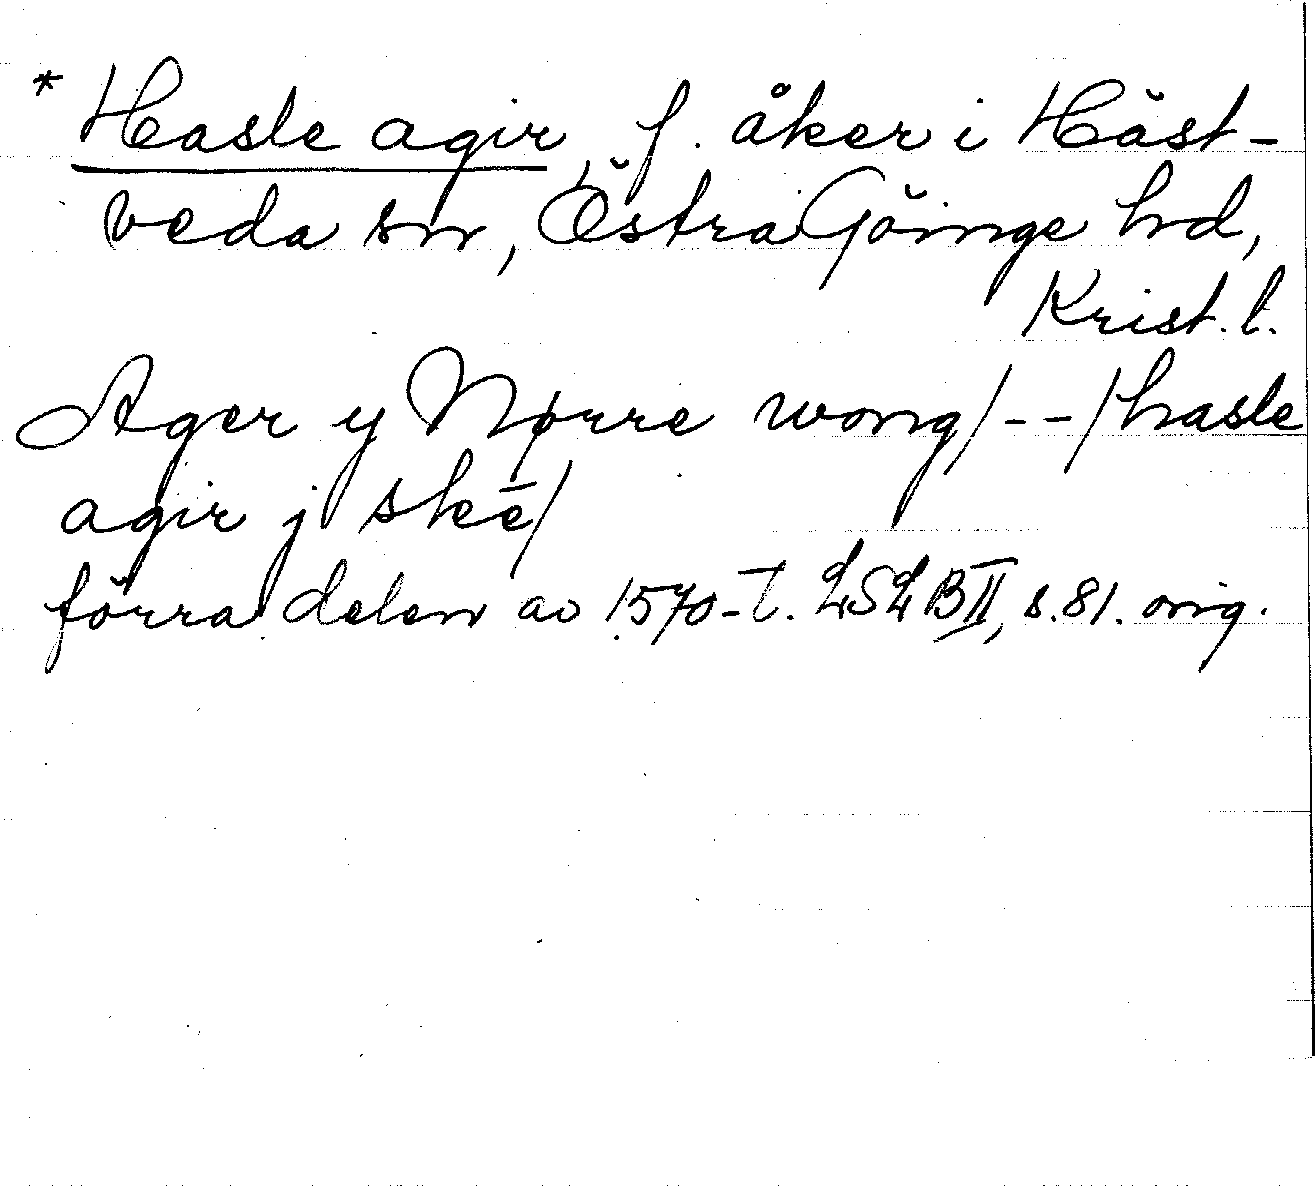 * Hasle agir, f. åker i Häst-
veda sn, Östra Göinge hd,
Krist. l.
Ager y Nørre wong/--/hasle
agir j skē/
förra delen av 1570-t. LSLB II, s. 81. orig.